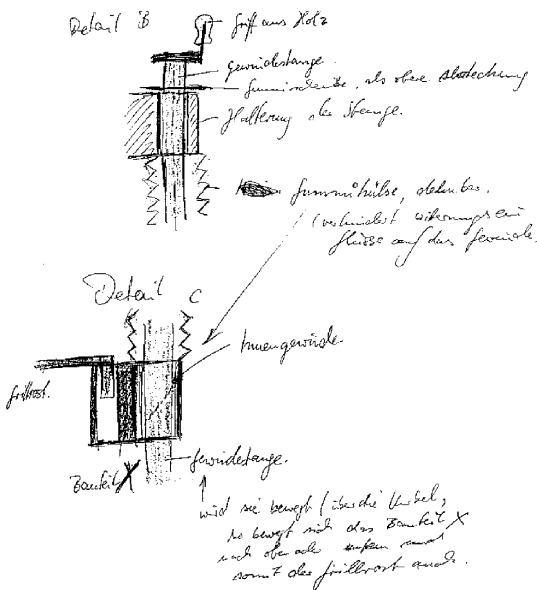 Detail B
Griff aus Holz
Gewindestange.
Gummischeibe, als obere Abdeckung
Halterung der Stange.
Gummihülse, dehnbar.
(verhindert witterungsein
flüsse auf das Gewinde.
Detail C
Innengewinde.
Grillrost.
Gewindestange.
Bauteil X
wird sie bewegt (über die Kurbel,
so bewegt sich das Bauteil X
nach oben oder unten und
somit der Grillrost auch.